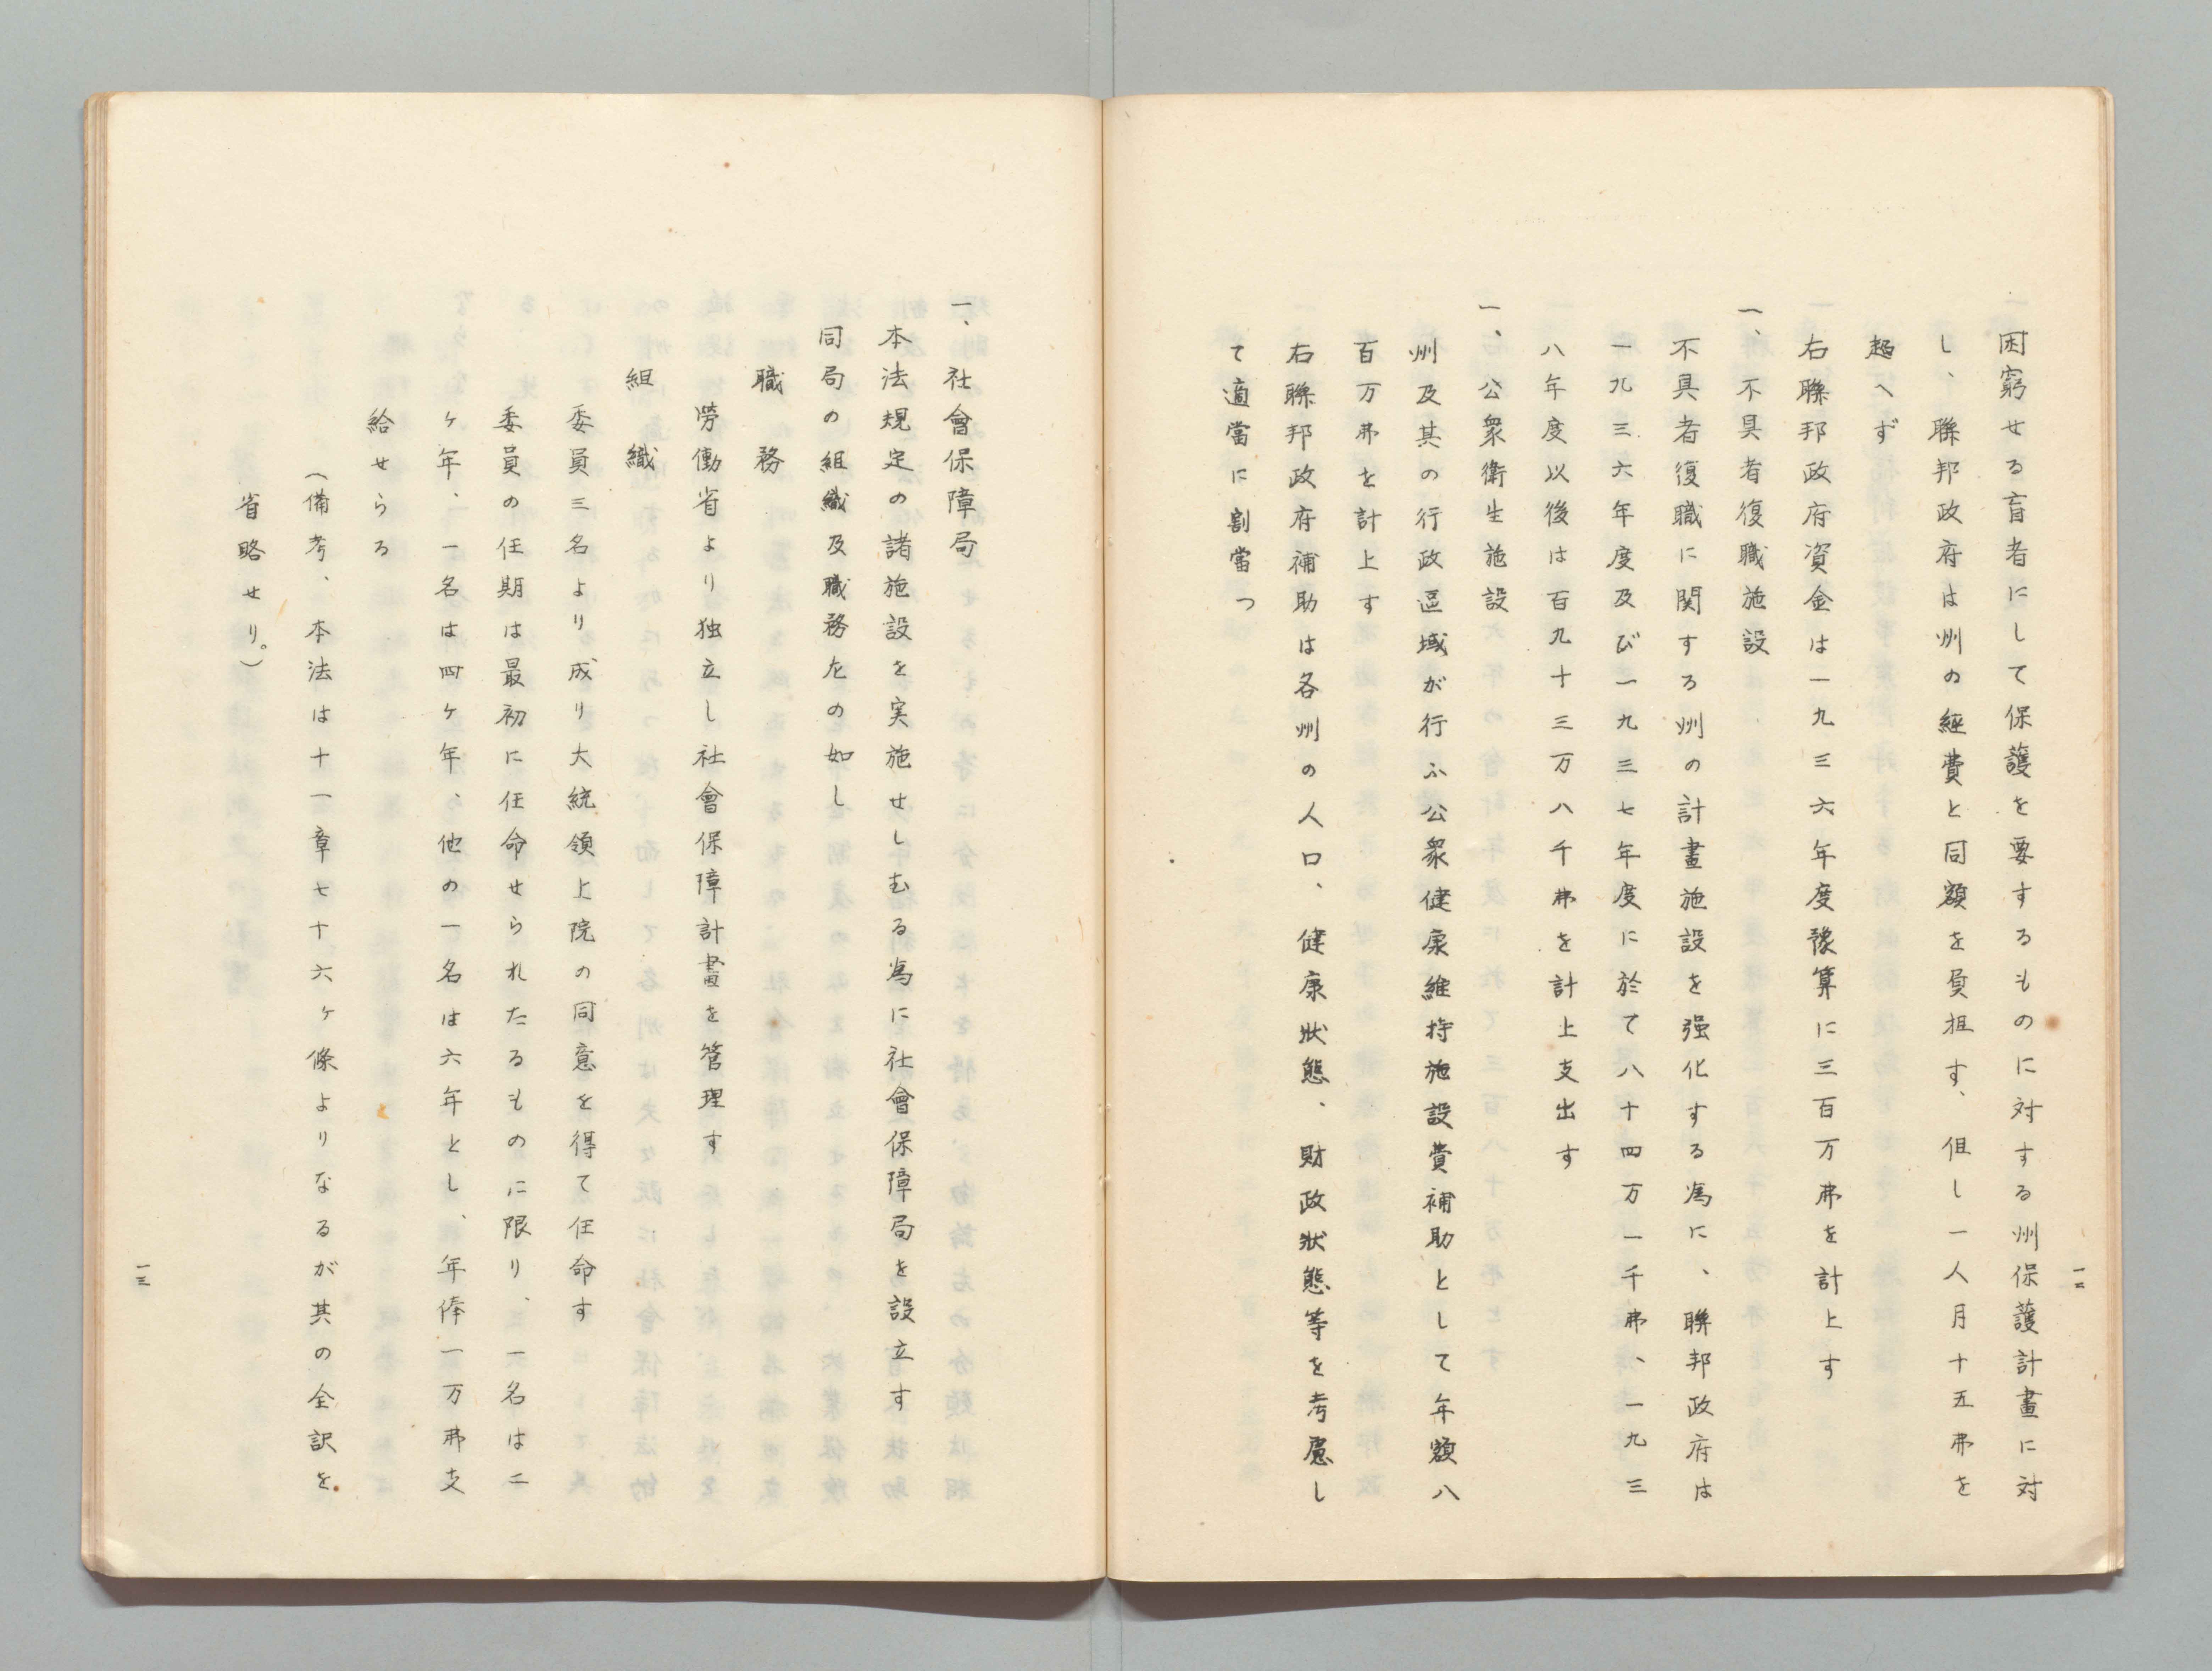 困窮せる盲者にして保護を要するものに対する州保護計畫に対
し、聯邦政府は州の經費と同額を負担す、但し一人月十五弗を
超へず
右聯邦政府資金は一九三六年度豫算に三百万弗を計上す
一、不具者復職施設
不具者復職に関する州の計畫施設を强化する爲に、聯邦政府は
一九三六年度及び一九三七年度に於て八十四万一千弗、一九三
八年度以後は百九十三万八千弗を計上支出す
一、公衆衛生施設
州及其の行政區域が行ふ公衆健康維持施設費補助として年額八
百万弗を計上す
右聯邦政府補助は各州の人口、健康狀態、財政狀態等を考慮し
て適當に割當つ
一二
一、社會保障局
本法規定の諸施設を実施せしむる爲に社會保障局を設立す
同局の組織及職務左の如し
職務
勞働省より独立し社會保障計畫を管理す
組織
委員三名より成り大統領上院の同意を得て任命す
委員の任期は最初に任命せられたるものに限り、一名は二
ヶ年、一名は四ヶ年、他の一名は六年とし、年俸一万弗支
給せらる
（備考、本法は十一章七十六ヶ條よりなるが其の全訳を
省略せり。）
一三